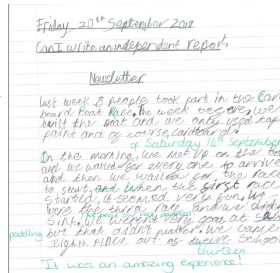 Friday 27th September 2018
Can I write an independent report.
Newsletter
last week 8 people took part in the Card
board Boat Race. The week before, we
built the boat and we only used tape
paint and of course, cardboard.
on Saturday 14th September
In the morning, we met up on the
and we waited for every one to arrive
and then we waited for the race
to start. and When the first race
started, it seemed very fun. We
were the third race and we didn't
sink. We weren't very good at
paddling but that didn't matter. We came
Eighth place out of twelve school
thurteen
It was an amazing experience!